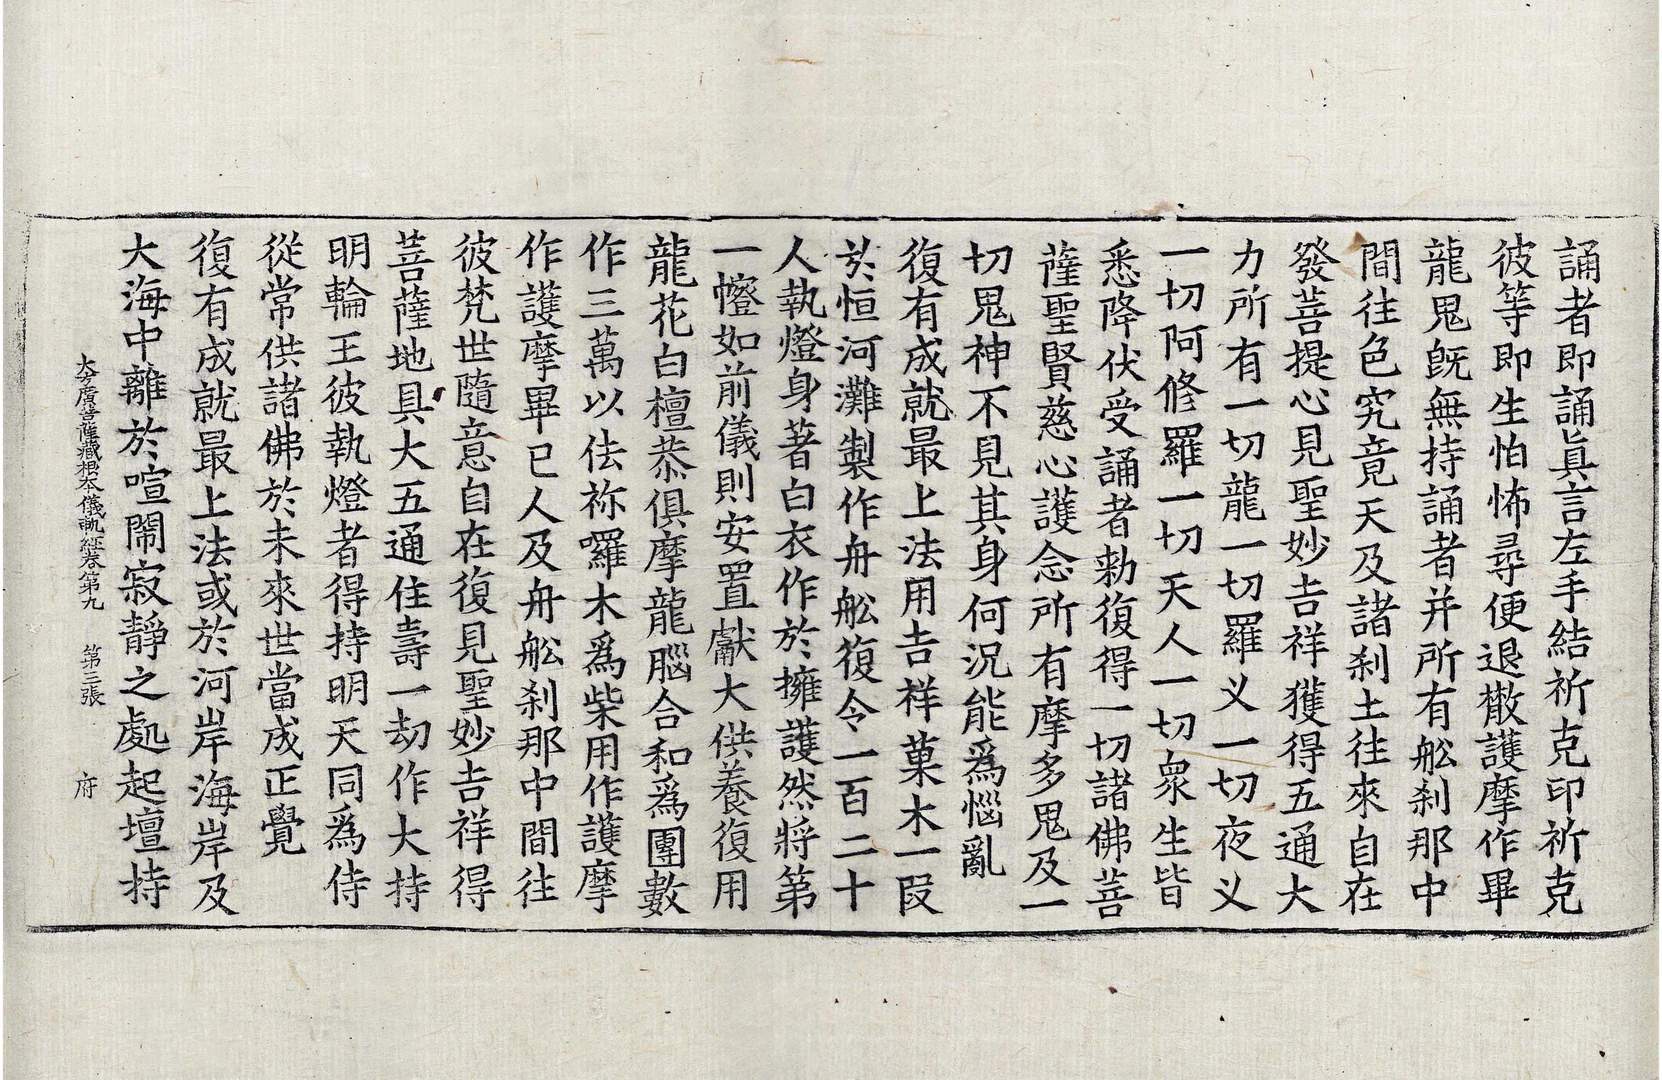 誦者即誦眞言左手結祈克印祈克
彼等即生怕怖尋便退撒護摩作畢
龍鬼旣無持誦者并所有舩刹那中
間往色究竟天及諸刹土往來自在
發菩提心見聖妙吉祥獲得五通大
力所有一切龍一切羅义一切夜义
一切阿修羅一切天人一切衆生皆
悉降伏受誦者勑復得一切諸佛菩
薩聖賢慈心護念所有摩多鬼及一
切鬼神不見其身何況能爲惱亂
復有成就最上法用吉祥菓木一叚
於恒河灘製作舟舩復令一百二十
人執燈身著白衣作於擁護然將第
一㡧如前儀則安置獻大供養復用
龍花白檀恭俱摩龍腦合和爲團數
作三萬以佉祢囉木爲柴用作護摩
作護摩畢已人及舟舩刹那中間往
彼梵世隨意自在復見聖妙吉祥得
菩薩地具大五通住壽一劫作大持
明輪王彼執燈者得持明天同爲侍
從常供諸佛於未來世當成正覺
復有成就最上法或於河岸海岸及
大海中離於喧鬧寂靜之處起壇持
大方廣菩薩藏根本儀軌經卷第九 第三張 府